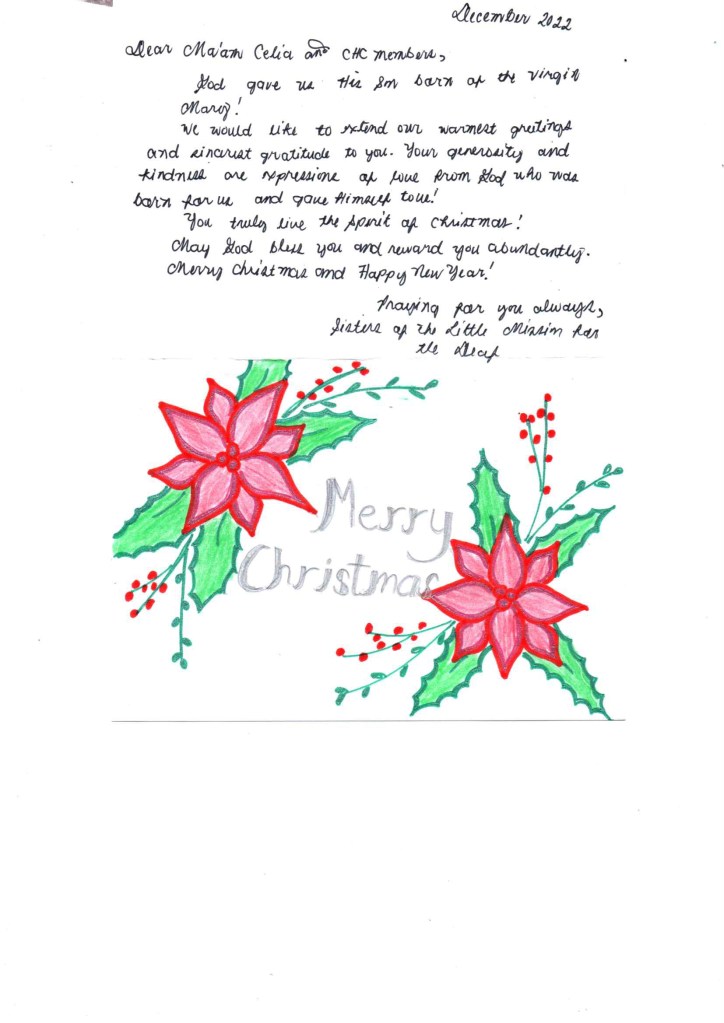 December 2022
Dear Ma'am Celia and CHC members,
God gave us His Son born of the Virgin
Mary!
We would like to extend our warmest greetings
and sincerest gratitude to you. Your generosity and
kindness are expressions of love from God who was
born for us and gave Himself to us!
You truly live the spirit of Christmas!
May God bless you and reward you abundantly.
Merry Christmas and Happy New Year!
Praying for you always,
Sisters of the Little Mission for
the Deaf
Merry
Christmas